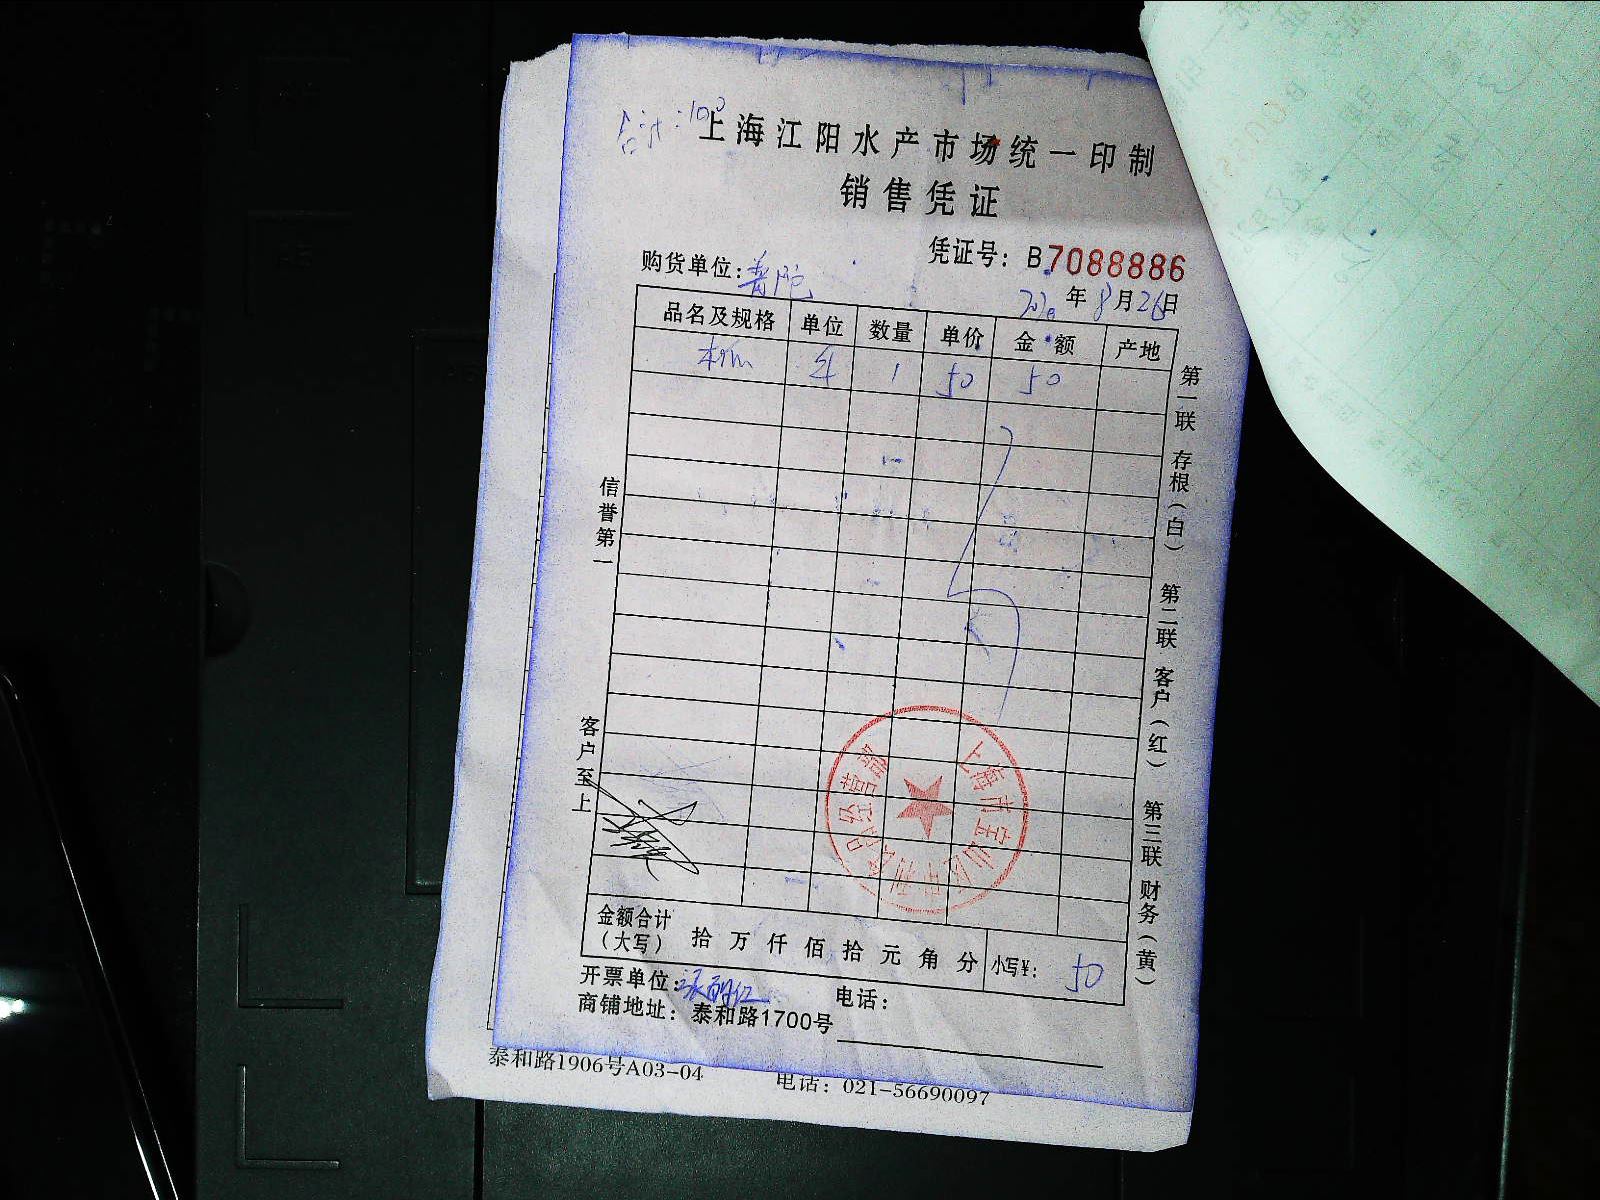 合计:100
上海江阳水产市场统一印制
销售凭证
凭证号: B7088886
购货单位:普陀
2020年8月26日
品名及规格 单位 数量 单价 金额 产地
1 50 50
第一联 存根(白) 第二联 客户(红) 第三联 财务(黄)
信誉第一
客户至上
金额合计(大写) 拾万仟佰拾元角分 小写¥: 50
开票单位:张丽红
电话:
商铺地址: 泰和路1700号
泰和路1906号A03-04 电话: 021-56690097